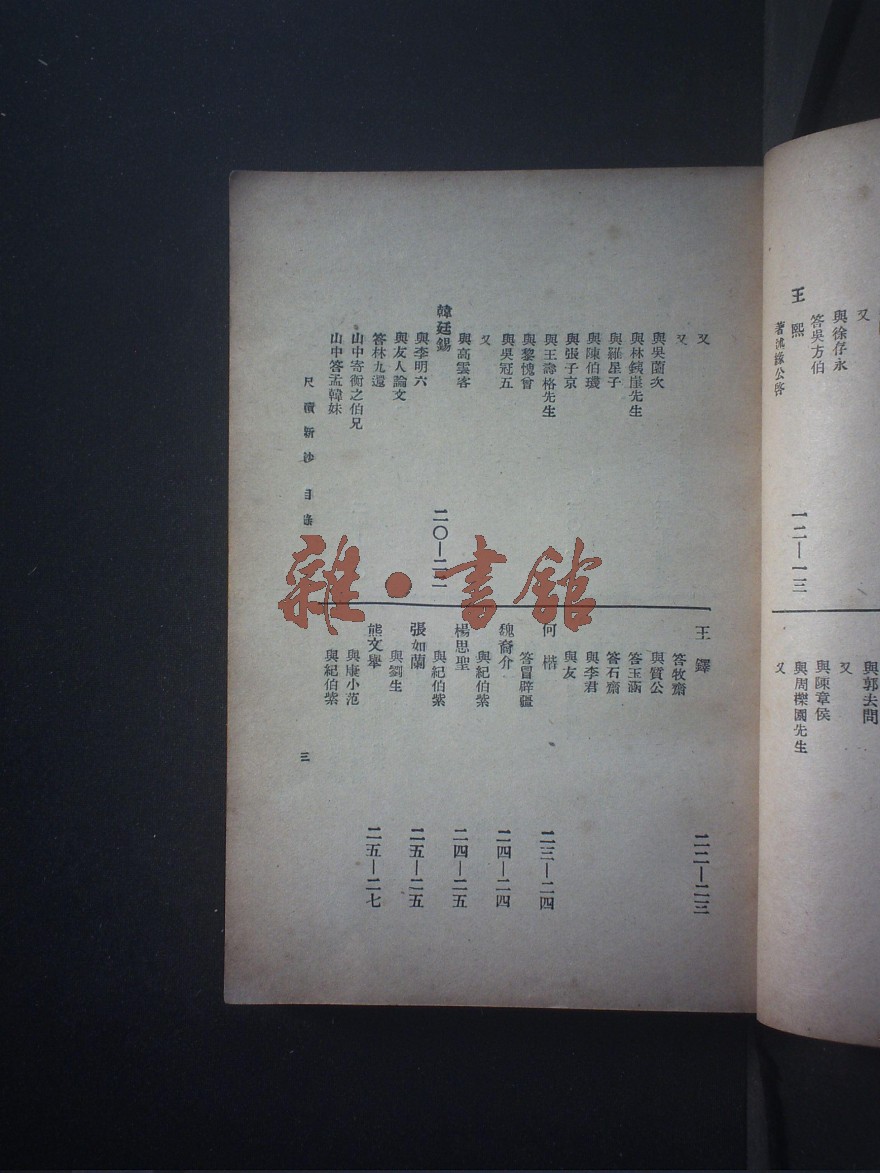 又
與徐仔永
答吳方伯
王熙 一二—一三
著述緣公啓
與郭去問
又
與陳章侯
與周櫟園先生
又
又
又
與吳薗次
與林鐵崖先生
與羅星子
與陳伯璣
與張子京
與王壽格先生
與黎愧曾
與吳冠五
又
與高雲客
韓廷錫 二〇—二二
與李明六
與友人論文
答林九還
山中寄衡之伯兄
山中答孟韓妹
王鐸 二二—二三
答牧齋
與質公
答玉涵
答石齋
與李君
與友
何楷 二三—二四
答冒辟疆
魏裔介 二四—二四
與紀伯紫
楊思聖 二四—二五
與紀伯紫
張如蘭 二五—二五
與劉生
熊文舉 二五—二七
與康小范
與紀伯紫
尺牘新鈔 目錄
三
雜·書館